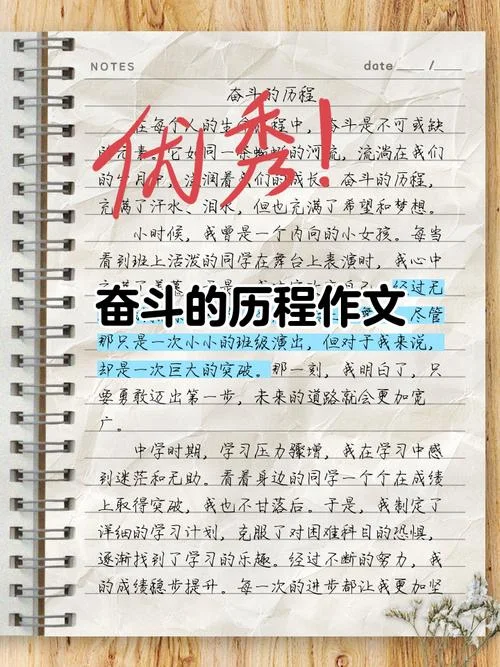 NOTES date /
奋斗的历程
优秀!
在每个人的生命历程中，奋斗是不可或缺
的元素。它如同一条蜿蜒的河流，流淌在我们
的岁月中，滋润着我们的成长。奋斗的历程，
充满了汗水、泪水，但也充满了希望和梦想。
小时候，我曾是一个内向的小女孩。每当
看到班上活泼的同学在舞台上表演时，我心中
经过无
奋斗的历程作文
尽管
那只是一次小小的班级演出，但对于我来说，
却是一次巨大的突破。那一刻，我明白了，只
要勇敢迈出第一步，未来的道路就会更加宽
广。
中学时期，学习压力骤增，我在学习中感
到迷茫和无助。看着身边的同学一个个在成绩
上取得突破，我也不甘落后。于是，我制定了
详细的学习计划，克服了对困难科目的恐惧，
逐渐找到了学习的乐趣。经过不断的努力，我
的成绩稳步提升。每一次的进步都让我更加坚